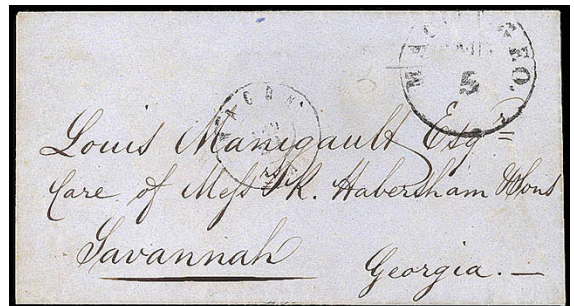 MACON GEO.
5
MACON
Louis Manigault Esqr
Care of Messrs R. Habersham & Sons
Savannah
Georgia. —